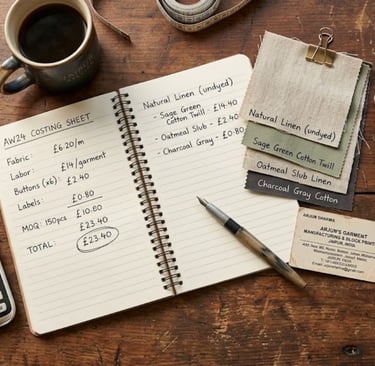 AW24 COSTING SHEET
Fabric: £6.20/m
Labor: £14/garment
Buttons (x6) £2.40
Labels: £0.80
MOQ: 150pcs £10.60
£23.40
TOTAL: £23.40
Natural Linen (undyed)
- Sage Green
Cotton Twill - £14.40
- Oatmeal Slub - £2.40
- Charcoal Gray - £0.80
Natural Linen (undyed)
Sage Green Cotton Twill
Oatmeal Slub Linen
Charcoal Gray Cotton
ARJUN SHARMA
ARJUN'S GARMENT
MANUFACTURING & BLOCK PRINT
JAIPUR, INDIA